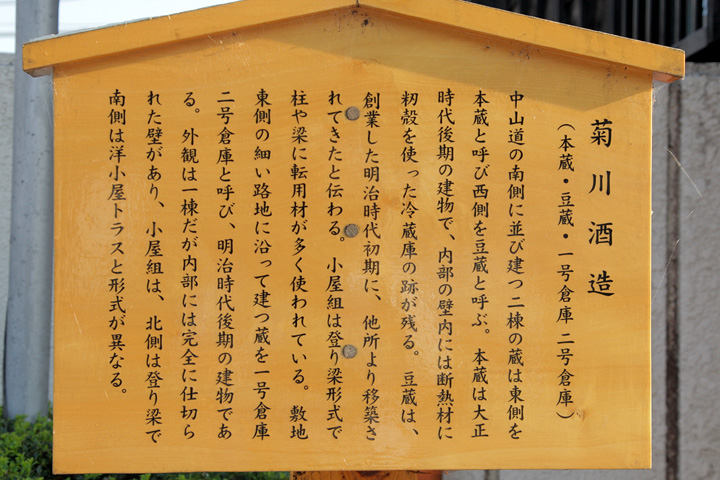 菊川酒造
（本蔵・豆蔵・一号倉庫 二号倉庫）
中山道の南側に並び建つ二棟の蔵は東側を
本蔵と呼び西側を豆蔵と呼ぶ。本蔵は大正
時代後期の建物で、内部の壁内には断熱材に
籾殻を使った冷蔵庫の跡が残る。豆蔵は、
創業した明治時代初期に、他所より移築さ
れてきたと伝わる。小屋組は登り梁形式で
柱や梁に転用材が多く使われている。敷地
東側の細い路地に沿って建つ蔵を一号倉庫
二号倉庫と呼び、明治時代後期の建物であ
る。外観は一棟だが内部には完全に仕切ら
れた壁があり、小屋組は、北側は登り梁で
南側は洋小屋トラスと形式が異なる。